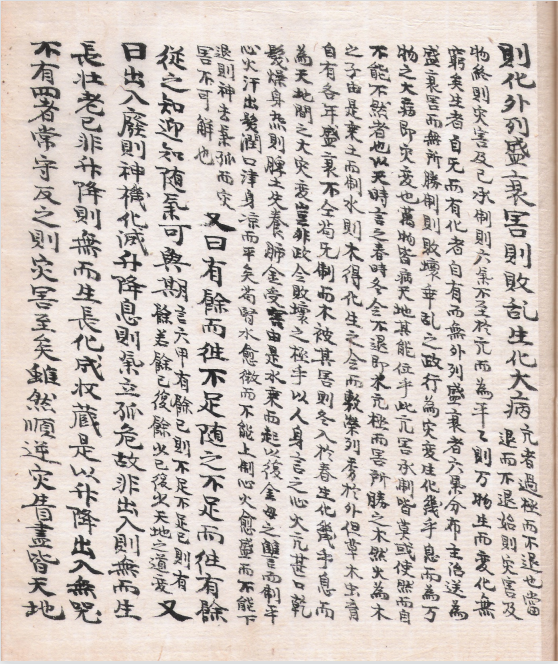 則化外列盛衰害則敗乱生化大病亢者過極而不退也當
退而不退始則灾害及
物終則灾害及己承制則六氣不至於亢而為平〻則万物生而变化無
窮矣生者自无而有化者自有而無外列盛衰者六氣分布主治迭為
盛衰害而無所勝制則敗壞乖乱之政行為灾变生化幾乎息而為万
物之大病即灾变也萬物皆病天地其能位乎此亢害承制皆莫或使然而自
不能不然者也以天時言之春時冬令不退即水亢極而害所勝之木然火為木
之子由是乘土而制水則木得化生之令而敷榮列秀於外但草木虫育
自有各年盛衰不全苟无制而木被其害則冬入於春生化幾乎息而
為天地間之大灾变豈非政令敗壞之極乎以人身言之心火亢甚口乾
髮燥身热則脾土失養肺金受害由是水乘而起以復金母之讐而制平
心火汗出髮潤口津身凉而平矣苟腎水愈微而不能上制心火愈盛而不能下
退則神去氣孤而灾
害不可解也
又曰有餘而徃不足隨之不足而徃有餘
從之知迎知隨氣可與期言六甲有餘已則不足不足已則有
餘若餘已復餘少已復少天地之道变
又
曰出入廢則神機化滅升降息則氣立孤危故非出入則無而生
長壯老已非升降則無而生長化成收藏是以升降出入無咒
不有四者常守反之則灾害至矣雖然順逆灾眚盡皆天地